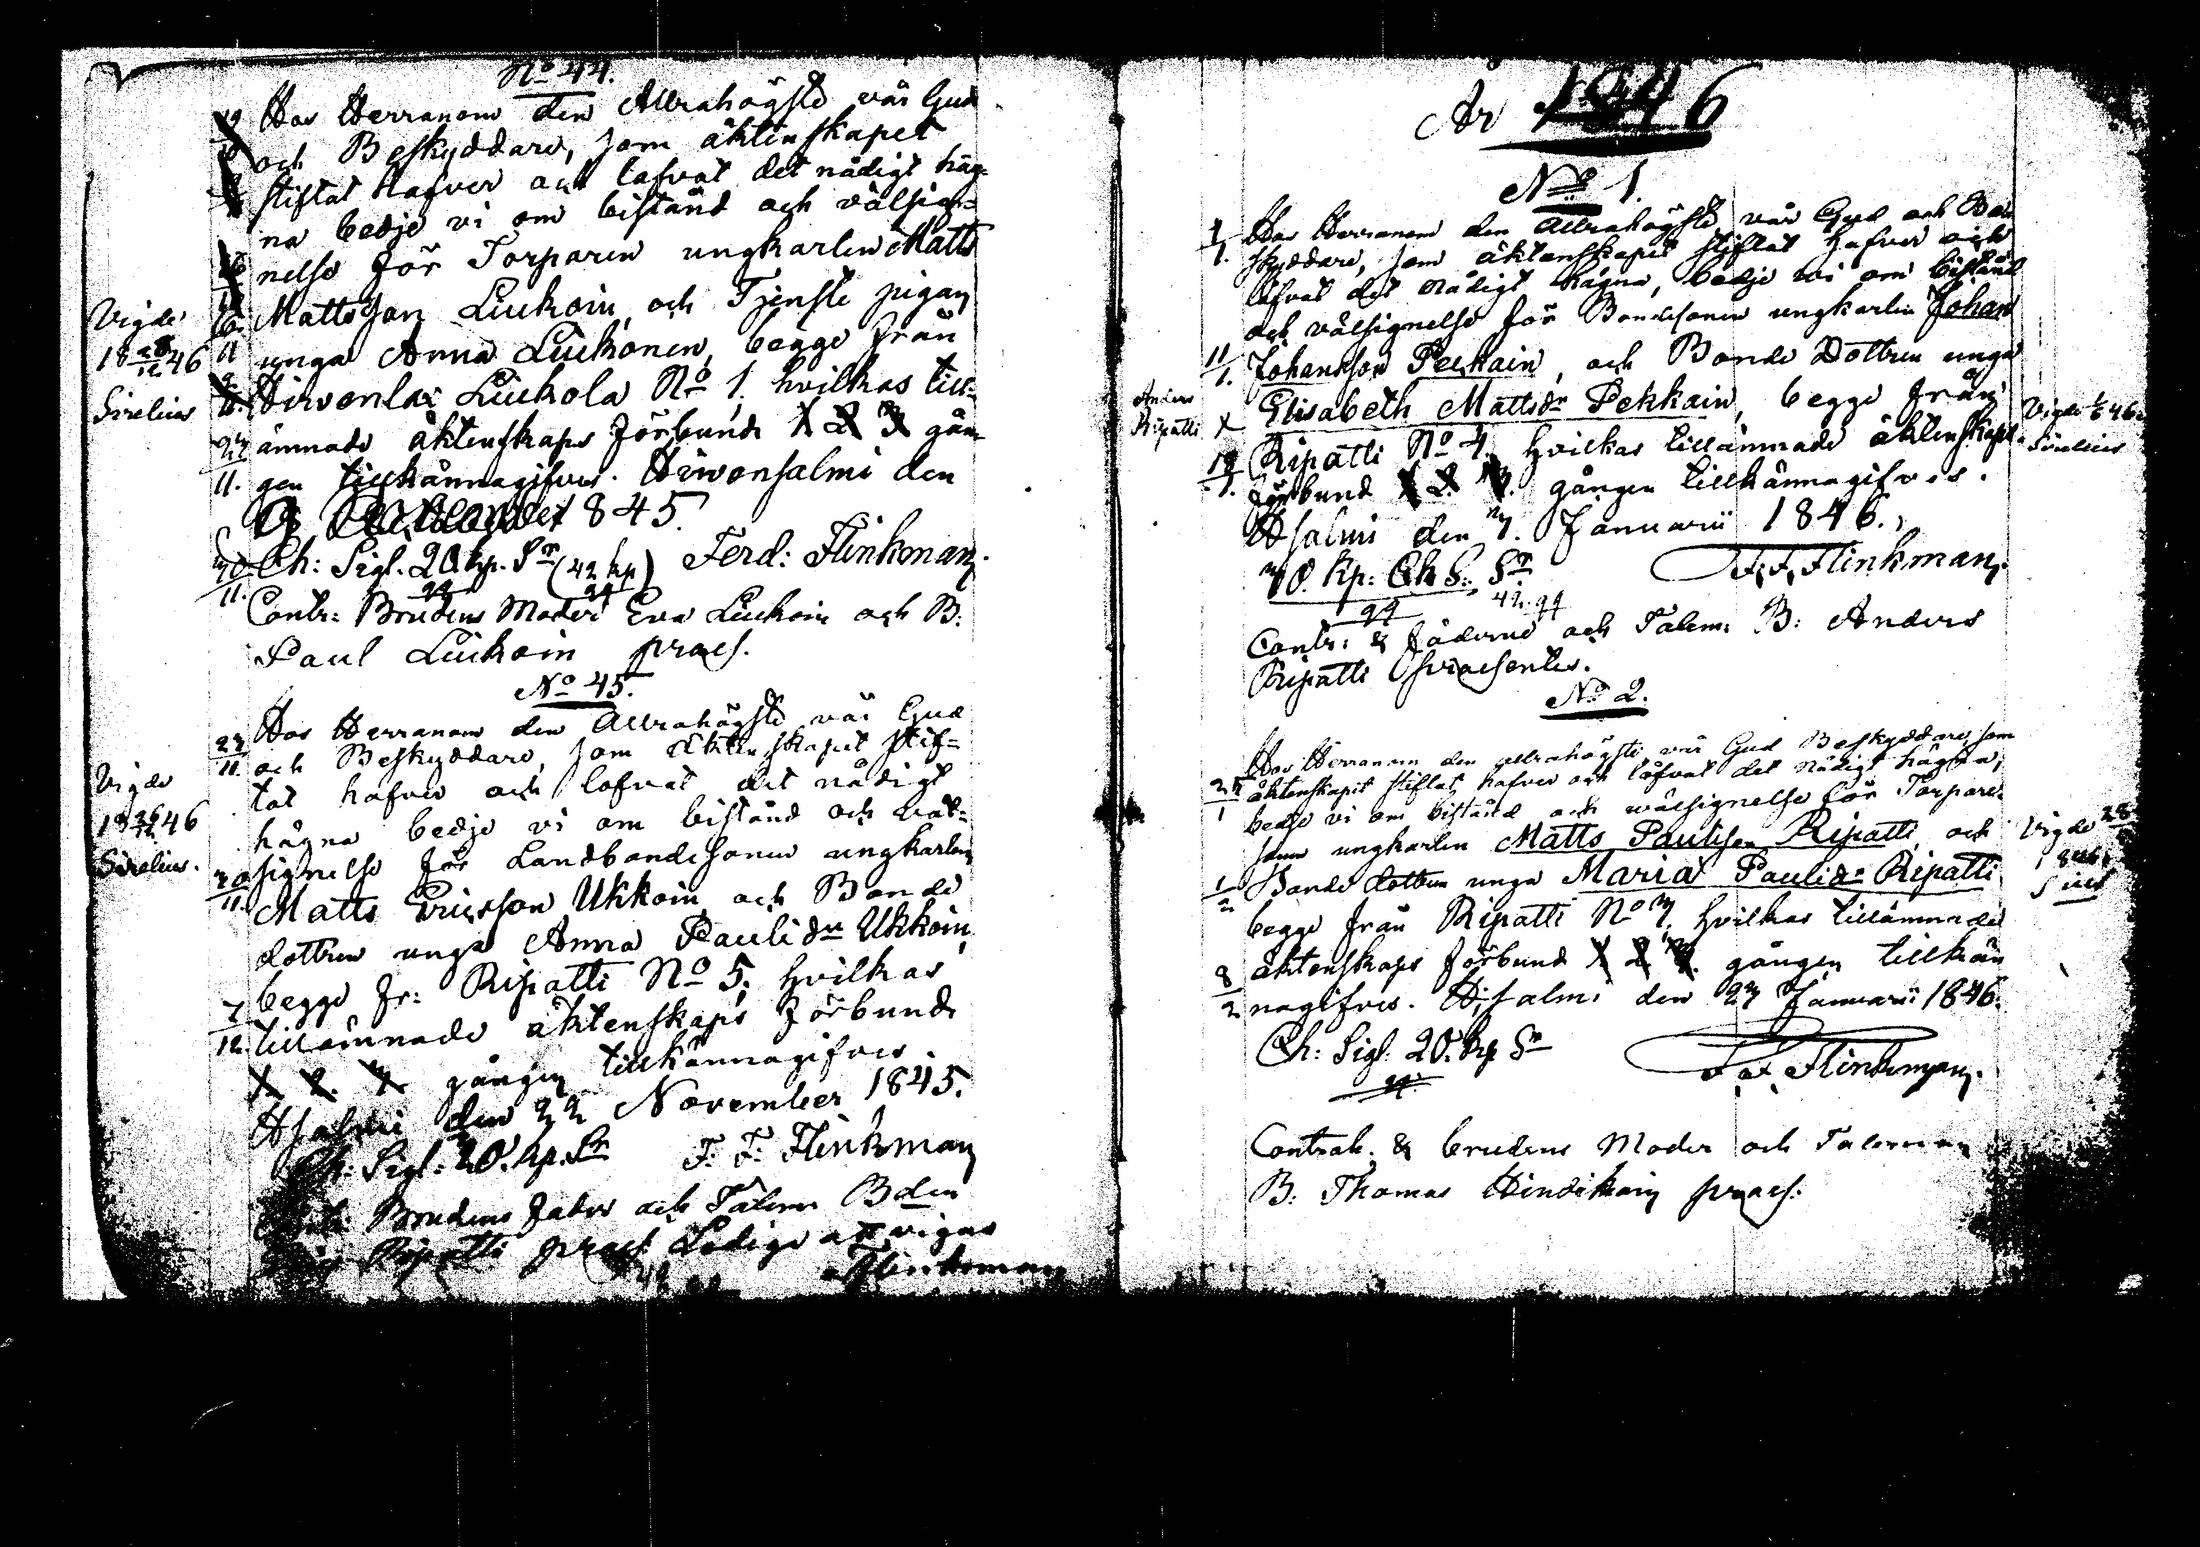 No 44.
Hos Herranom den Allrahögste vår Gud
och Beskyddare, som äktenskapet
stiftat hafver och lofvat det nådigt häg-
na bedje vi om bistånd och välsig-
nelse för Torparen ungkarlen Matts
Mattsson Liukoin, och Tjenste pigan
unga Anna Liukonen, begge från
Hirvenlax Liukola No 1. hvilkas till-
ämnade äktenskaps förbund 1 2 3 gån-
gen tillkännagifves. Hirvensalmi den
1845.
Ch: Sigl. 20 kp. Sr (42 kp) Ferd: Flinkman.
Contr: Brudens Moder Eva Liukoin och B:
Paul Liukoin præs.
Vigde
18 28/12 46
Sirelius
No 45.
Hos Herranom den Allrahögste vår Gud
23/11 och Beskyddare, som äktenskapet stif-
tat hafver och lofvat det nådigt
hägna bedje vi om bistånd och väl-
signelse för Landbondesonen ungkarlen
30/11 Matts Ericsson Ukkoin, och Bonde
dottren unga Anna Paulidr Ukkoin,
begge fr: Ripatti No 5, hvilkas
7/12 tillämnade äktenskaps förbund
1. 2. 3. gången tillkännagifves.
Hsalmi den 22 November 1845.
Ch: Sigl: 20. kp. Sr F: F: Flinkman
Brudens fader och Talem B
Ripatti præs. Ledige att vigas
Flinkman
Vigde
18 26/12 46
Sirelius.
År 1846
No 1.
Hos Herranom den Allrahögste vår Gud och Be-
skyddare, som äktenskapet stiftat hafver och
lofvat det nådigt hägna, bedje vi om bistånd
och välsignelse för Bondesonen ungkarlen Johan
11/1. Johansson Pekkain, och Bonde Dottren unga
Elisabeth Mattsdr Pekkain, begge från
Ripatti No 4. hvilkas tillämnade äktenskaps-
förbund 1 2. 3. gången tillkännagifves.
Hsalmi den 3. Januarii 1846.
20. Kp: Ch S: Sr F. F. Flinkman.
Contr: & fäderne och Talem: B: Anders
Ripatti præsentes.
Anders
Ripatti
Vigde
Sirelius
No 2.
Hos Herranom den allrahögste vår Gud Beskyddare, som
äktenskapet stiftat hafver och lofvat det nådigt hägna,
bedje vi om bistånd och wälsignelse för Torpare-
sonen ungkarlen Matts Paulisson Ripatti, och
1/2 Bonde dottren unga Maria Paulidr Ripatti
begge från Ripatti No 7, hvilkas tillämnade
8/2 äktenskaps förbund 1 2 3. gången tillkän
nagifves. H.salmi den 23 Januarii 1846.
Ch: Sigl: 20. kp Sr
F. F. Flinkman.
Contrah. & brudens Moder och Taleman
B: Thomas Hindikain præs:
Vigde 28